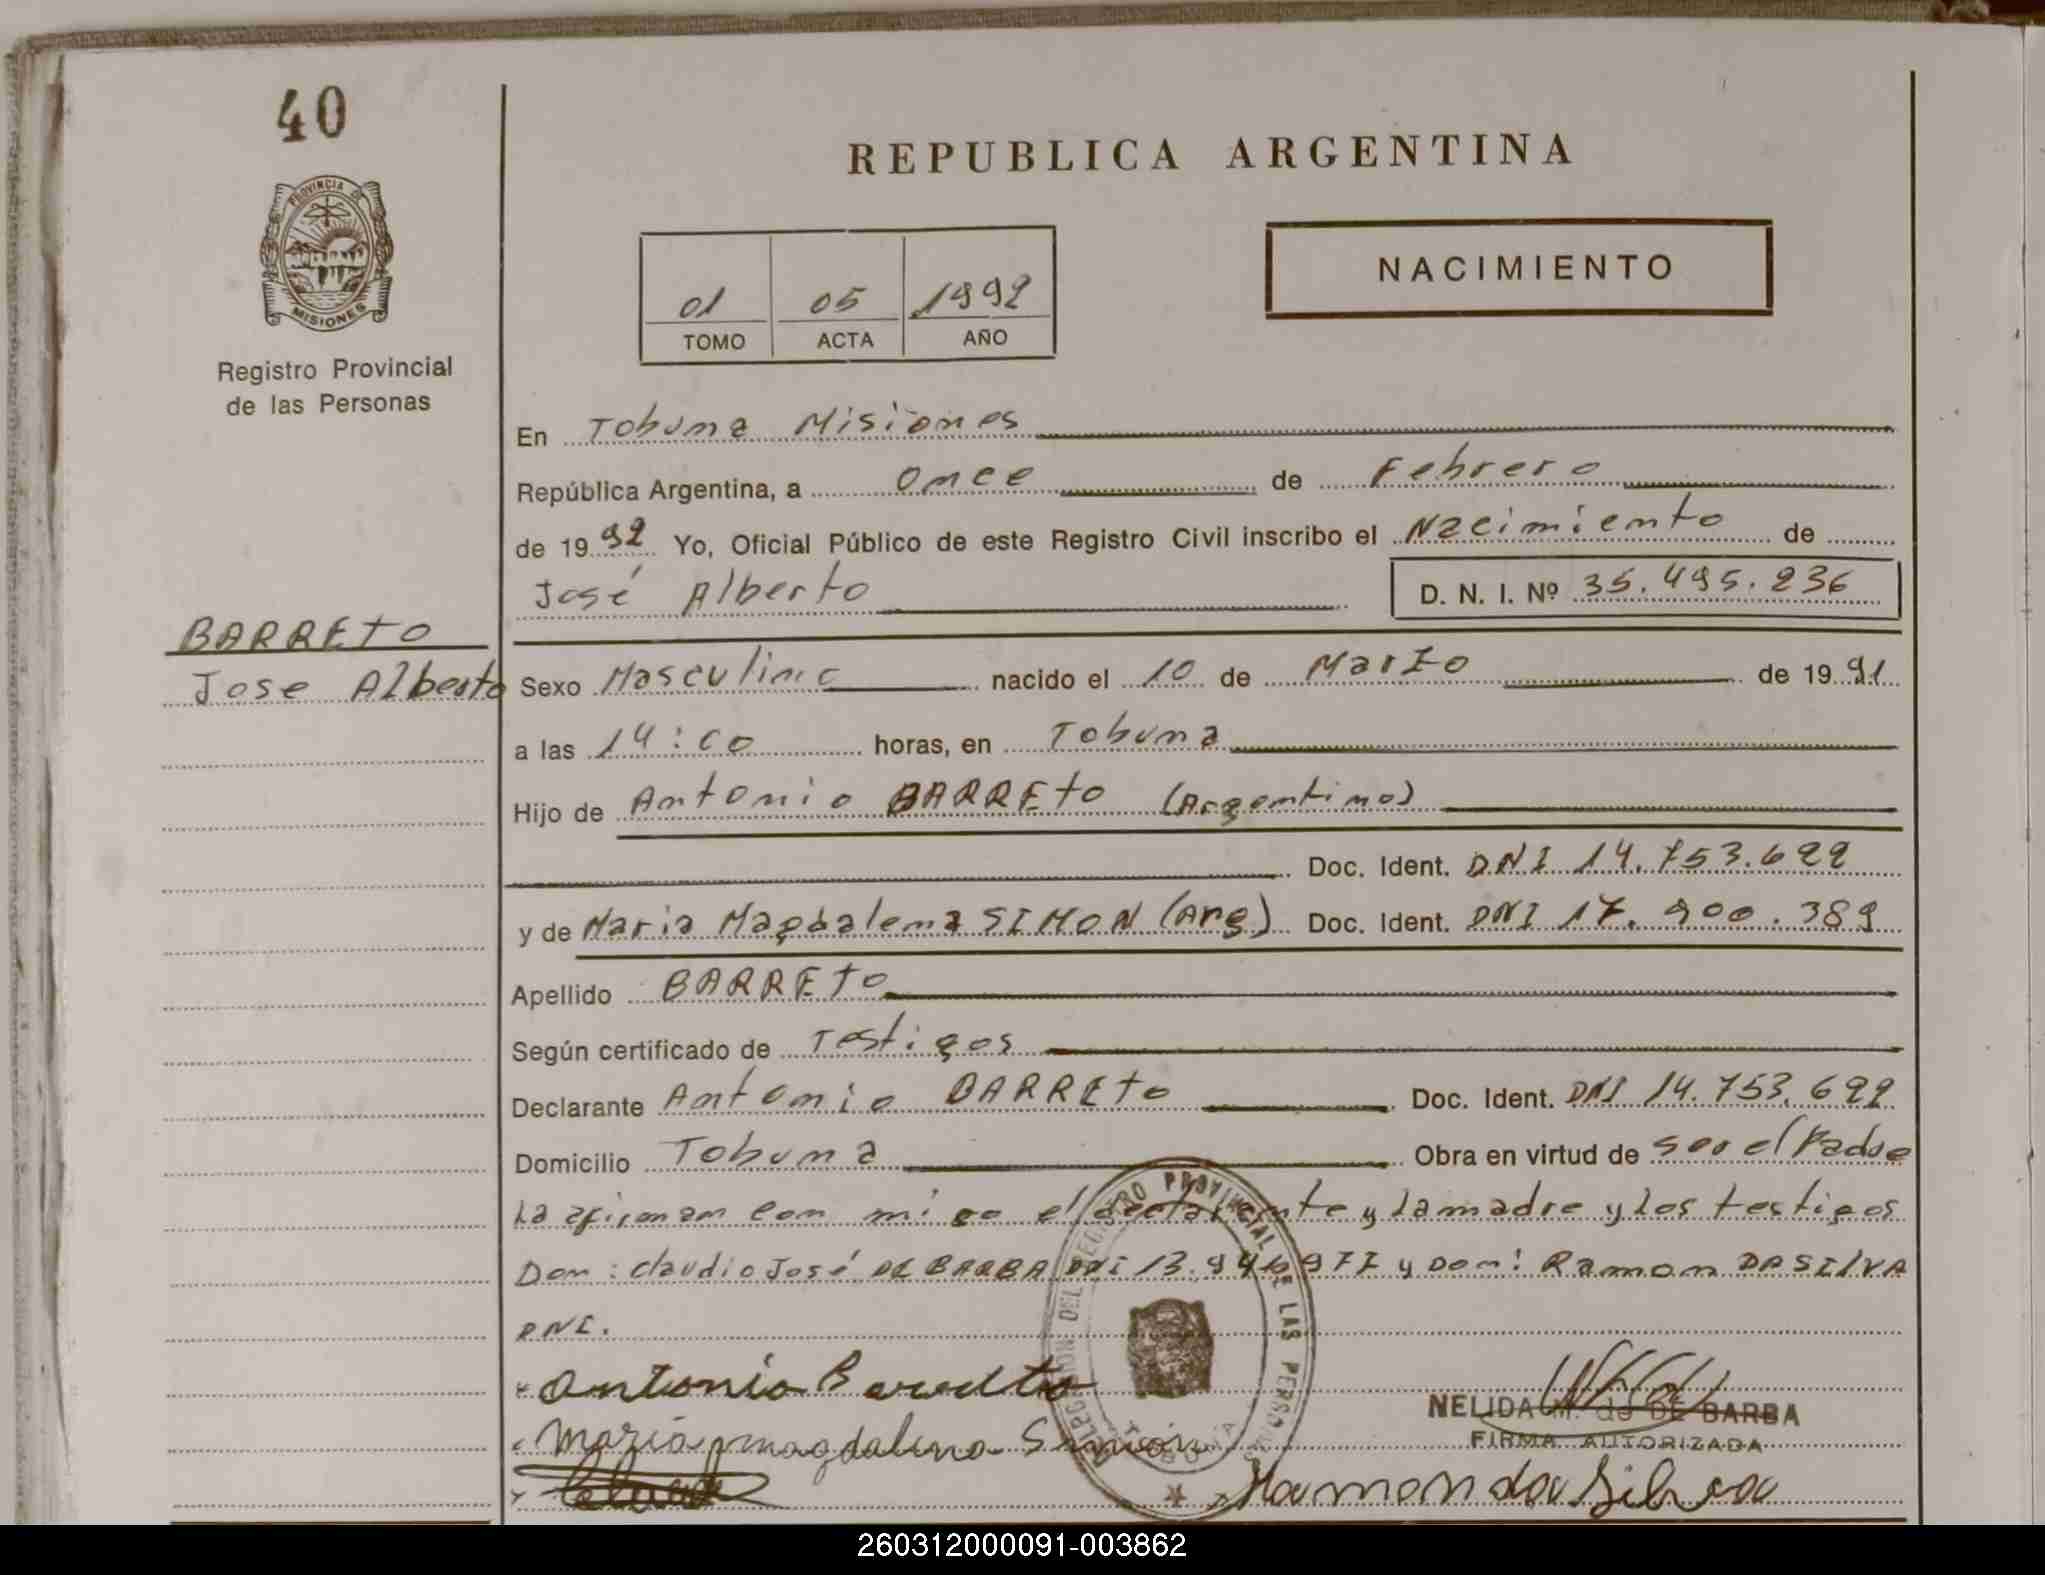 40
REPUBLICA ARGENTINA
PROVINCIA DE
MISIONES
Registro Provincial
de las Personas
01 05 1992
TOMO ACTA AÑO
NACIMIENTO
En Tobuna Misiones
República Argentina, a Once de Febrero
de 1992 Yo, Oficial Público de este Registro Civil inscribo el Nacimiento de
José Alberto D. N. I. Nº 35.495.236
BARRETO
Jose Alberto
Sexo Masculino nacido el 10 de Marzo de 1991
a las 14:00 horas, en Tobuna
Hijo de Antonio BARRETO (Argentino)
Doc. Ident. DNI 14.753.692
y de Maria Magdalena SIMON (Arg) Doc. Ident. DNI 17.900.389
Apellido BARRETO
Según certificado de Testigos
Declarante Antonio BARRETO Doc. Ident. DNI 14.753.692
Domicilio Tobuna Obra en virtud de ser el Padre
La afirman con migo el declarante y la madre y los testigos
Don: Claudio José DE BARBA DNI 13. 977 y Don: Ramon DA SILVA
DNI.
Antonio Barreto
NELIDA M. de DE BARBA
FIRMA AUTORIZADA
Maria magdalena Simon
Ramon da Silva
260312000091-003862